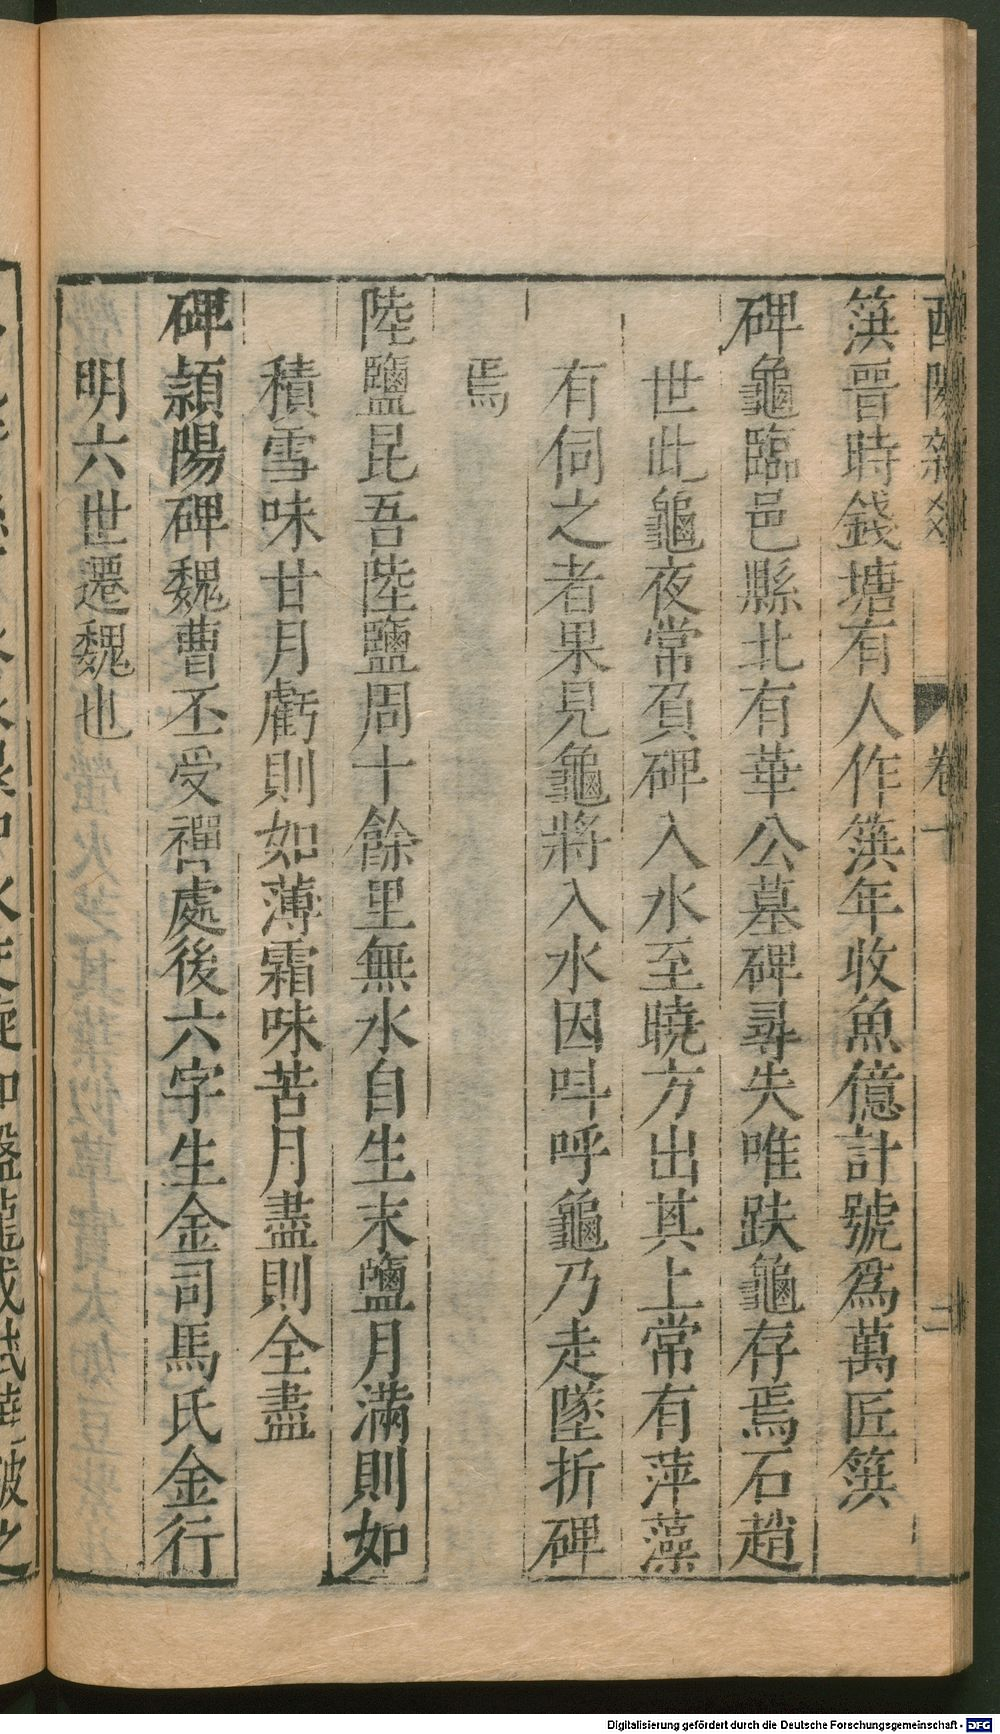 酉陽雜俎 卷十 二
篊晉時錢塘有人作篊年收魚億計號爲萬匠篊
碑龜臨邑縣北有華公墓碑尋失唯趺龜存焉石趙
世此龜夜常負碑入水至曉方出其上常有萍藻
有伺之者果見龜將入水因呌呼龜乃走墜折碑
焉
陸鹽昆吾陸鹽周十餘里無水自生末鹽月滿則如
積雪味甘月虧則如薄霜味苦月盡則全盡
碑潁陽碑魏曹丕受禪處後六字生金司馬氏金行
明六世遷魏也
Digitalisierung gefördert durch die Deutsche Forschungsgemeinschaft - DFG